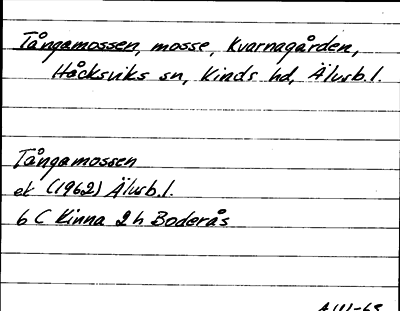 Tångamossen, mosse, Kvarnagården,
Håcksviks sn, Kinds hd, Älvsb.l.
Tångamossen
ek (1962) Älvsb.l.
6 C Kinna 2 h Boderås